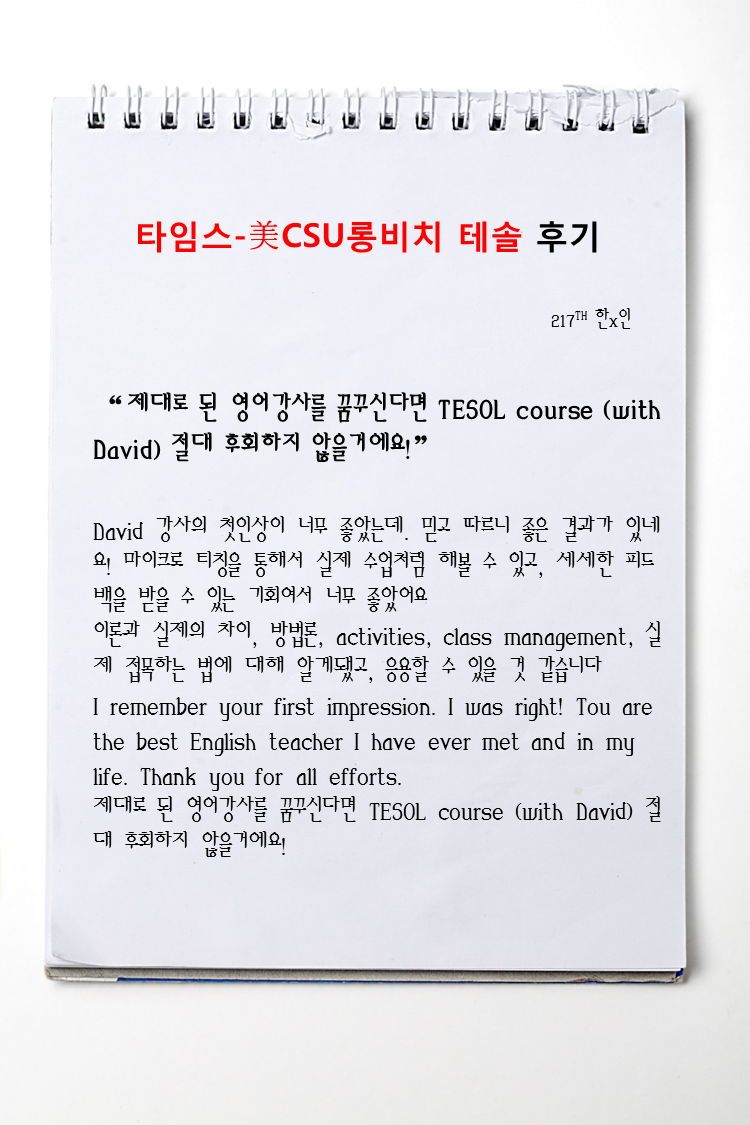 타임스-美CSU롱비치 테솔 후기
217TH 한x인
“ 제대로 된 영어강사를 꿈꾸신다면 TESOL course (with
David) 절대 후회하지 않을거에요!”
David 강사의 첫인상이 너무 좋았는데. 믿고 따르니 좋은 결과가 있네
요! 마이크로 티칭을 통해서 실제 수업처럼 해볼 수 있고, 세세한 피드
백을 받을 수 있는 기회여서 너무 좋았어요
이론과 실제의 차이, 방법론, activities, class management, 실
제 접목하는 법에 대해 알게됐고, 응용할 수 있을 것 같습니다
I remember your first impression. I was right! Tou are
the best English teacher I have ever met and in my
life. Thank you for all efforts.
제대로 된 영어강사를 꿈꾸신다면 TESOL course (with David) 절
대 후회하지 않을거에요!